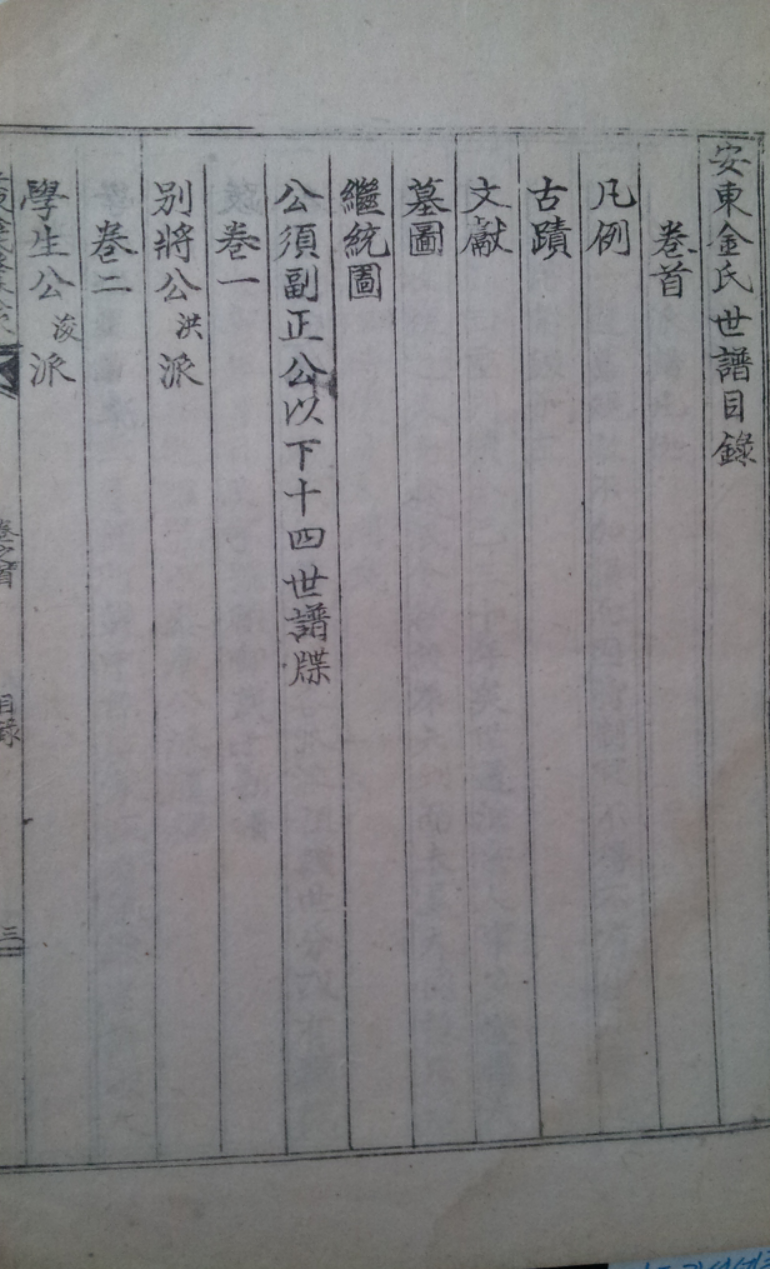 安東金氏世譜目錄
卷首
凡例
古蹟
文獻
墓圖
繼統圖
公須副正公以下十四世譜牒
卷一
別將公洪派
卷二
學生公浚派
卷之首
目錄
三